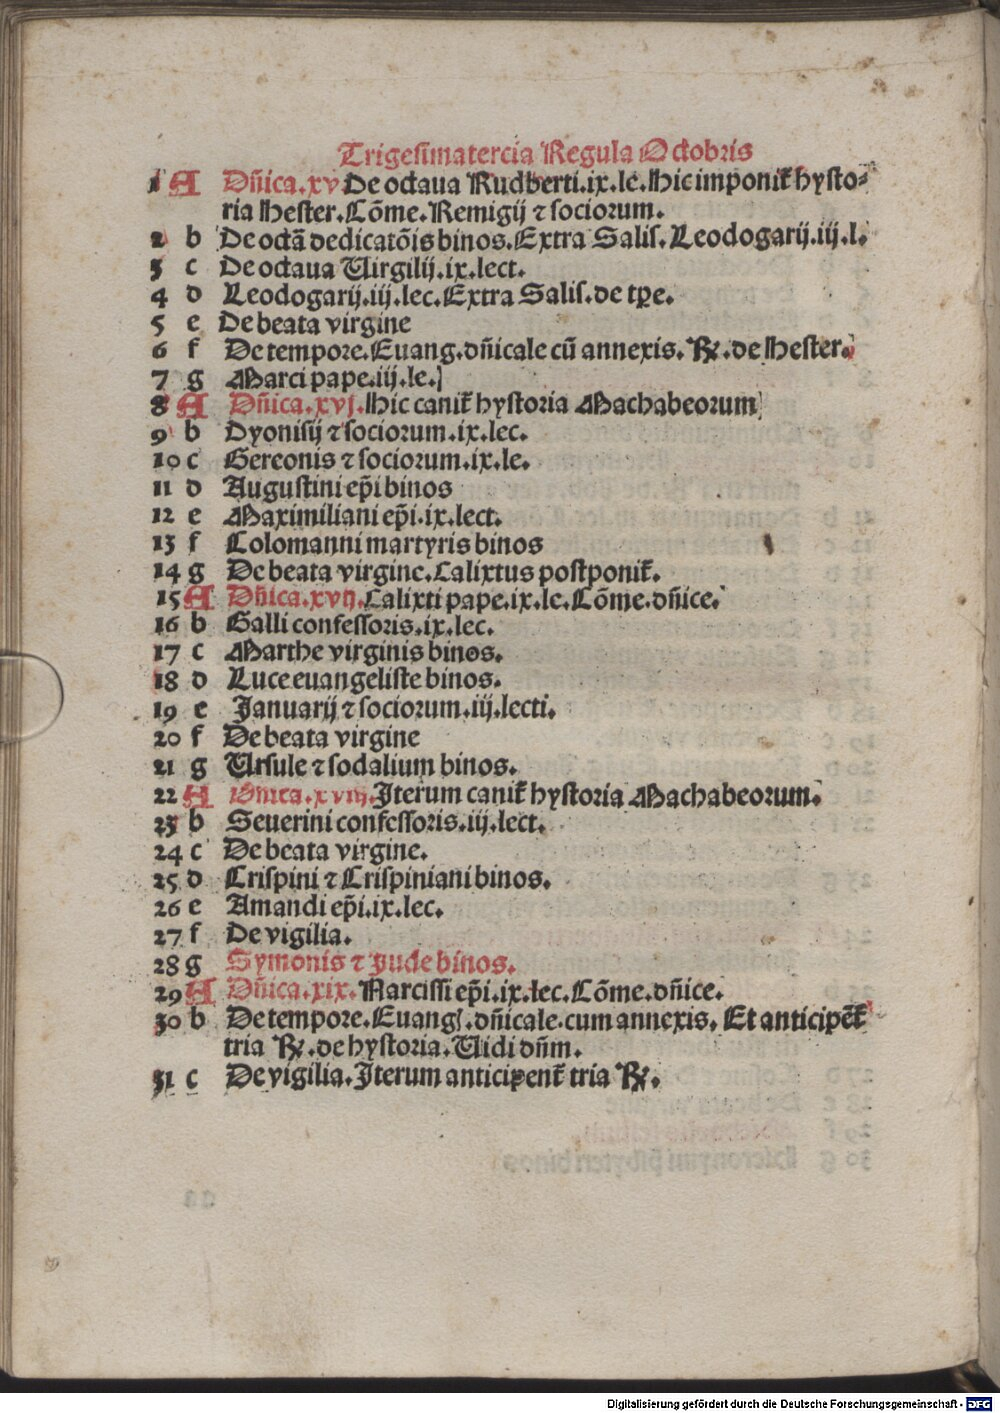 Trigesimatercia Regula Octobris
1 A Dñica.xv De octaua Rudberti.ix.le.Hic imponit̃ hysto⸗
ria Hester.Cõme.Remigij ⁊ sociorum.
2 b De octã dedicatõis binos.Extra Salis.Leodogarij.iij.l.
3 c De octaua Virgilij.ix.lect.
4 d Leodogarij.iij.lec.Extra Salis.de tꝑe.
5 e De beata virgine
6 f De tempore.Euang.dñicale cũ annexis.℟.de Hester.
7 g Marci pape.iij.le.
8 A Dñica.xvj.Hic canit̃ hystoria Machabeorum
9 b Dyonisij ⁊ sociorum.ix.lec.
10 c Gereonis ⁊ sociorum.ix.le.
11 d Augustini ep̃i binos
12 e Maximiliani ep̃i.ix.lect.
13 f Colomanni martyris binos
14 g De beata virgine.Calixtus postponit̃.
15 A Dñica.xvij.Calixti pape.ix.le.Cõme.dñice.
16 b Galli confessoris.ix.lec.
17 c Marthe virginis binos.
18 d Luce euangeliste binos.
19 e Januarij ⁊ sociorum.iij.lecti.
20 f De beata virgine
21 g Ursule ⁊ sodalium binos.
22 A Dñica.xviij.Iterum canit̃ hystoria Machabeorum.
23 b Seuerini confessoris.iij.lect.
24 c De beata virgine.
25 d Crispini ⁊ Crispiniani binos.
26 e Amandi ep̃i.ix.lec.
27 f De vigilia.
28 g Symonis ⁊ Jude binos.
29 A Dñica.xix.Narcissi ep̃i.ix.lec.Cõme.dñice.
30 b De tempore.Euangl.dñicale.cum annexis. Et anticipẽt̃
tria ℟.de hystoria.Vidi dñm.
31 c De vigilia.Iterum anticipent̃ tria ℟.
Digitalisierung gefördert durch die Deutsche Forschungsgemeinschaft - DFG